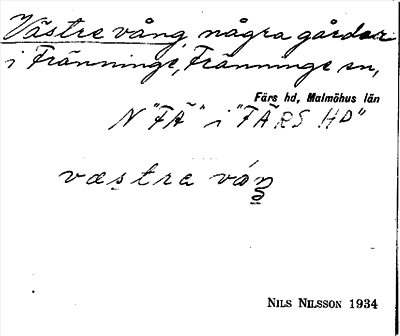 Västre vång, några gårdar
i Fränninge, Fränninge sn,
Färs hd, Malmöhus län
N "FÄ" i "FÄRS HD"
væstre váŋ
NILS NILSSON 1934